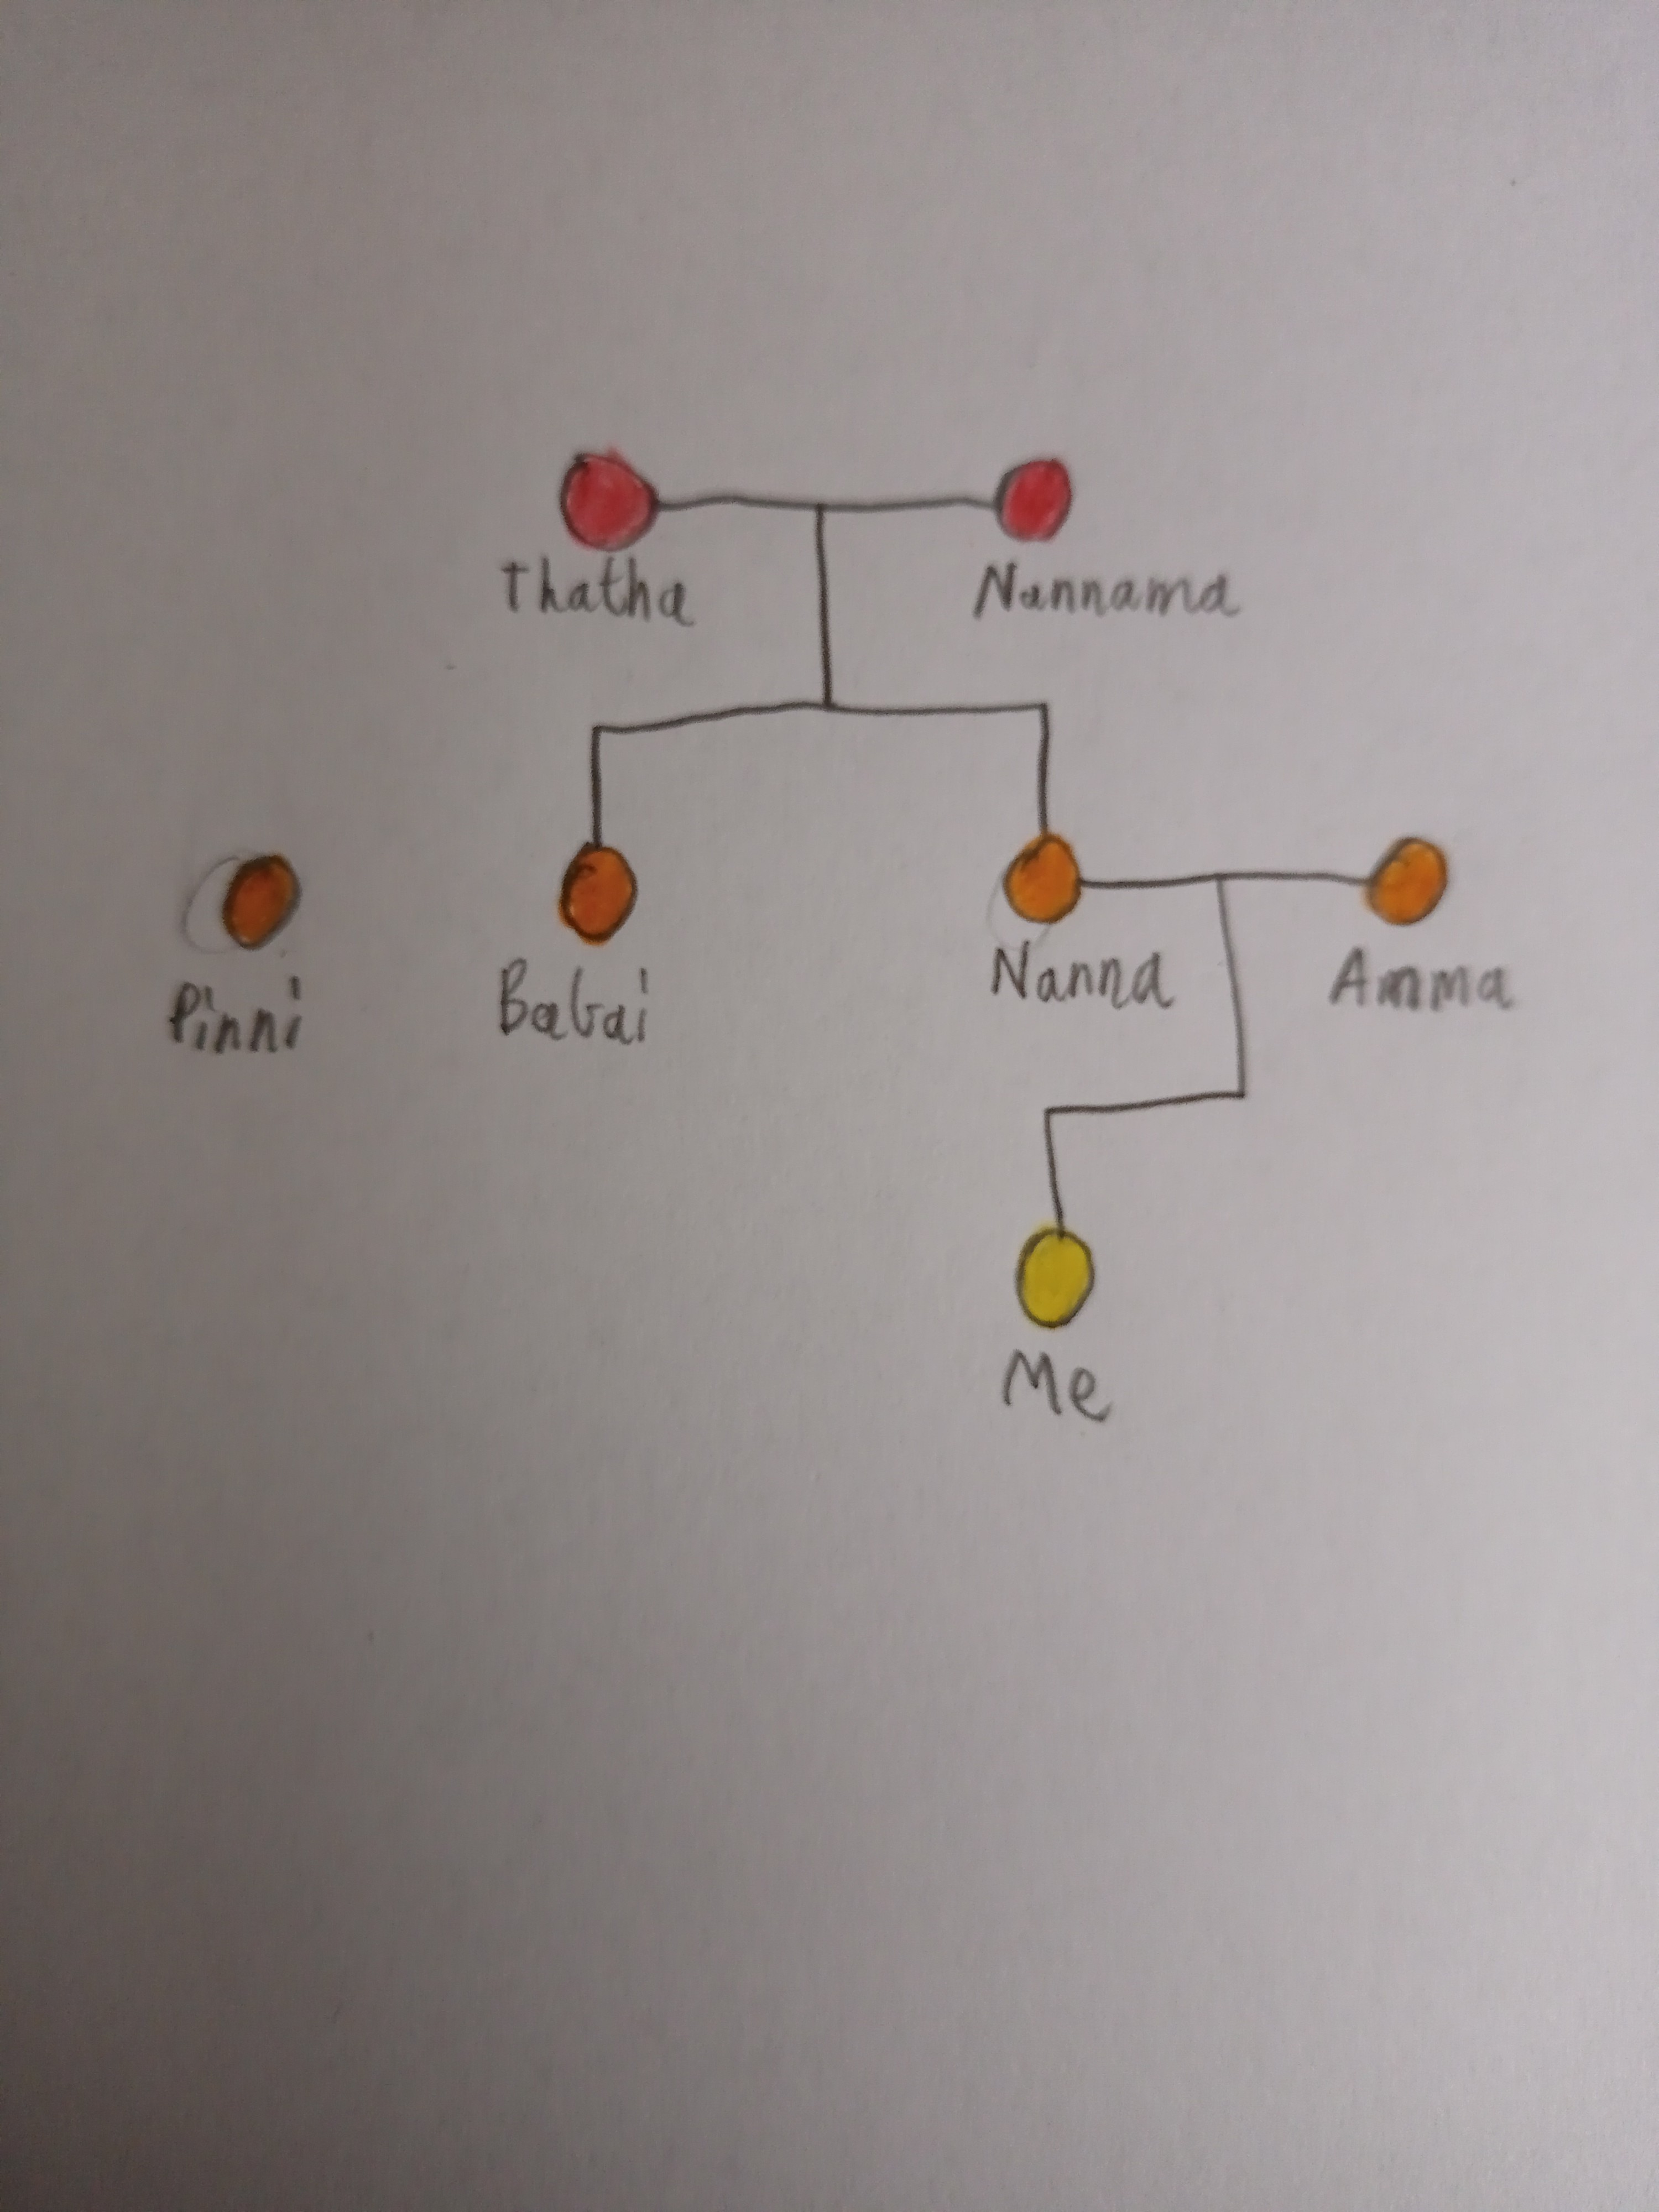 Thatha
Nannama
Pinni
Babai
Nanna
Amma
Me